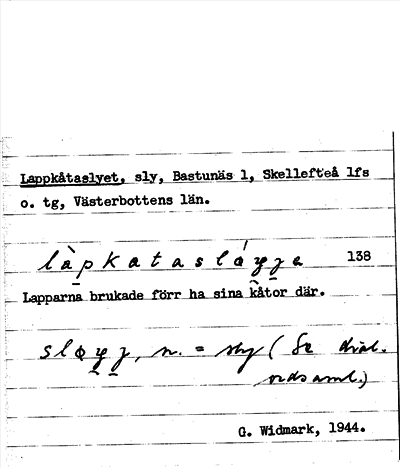 Lappkåtaslyet, sly, Bastunäs 1, Skellefteå lfs
o. tg, Västerbottens län.
138
Lapparna brukade förr ha sina kåtor där.
n. = sly (Se dial.
ordsaml.)
G. Widmark, 1944.